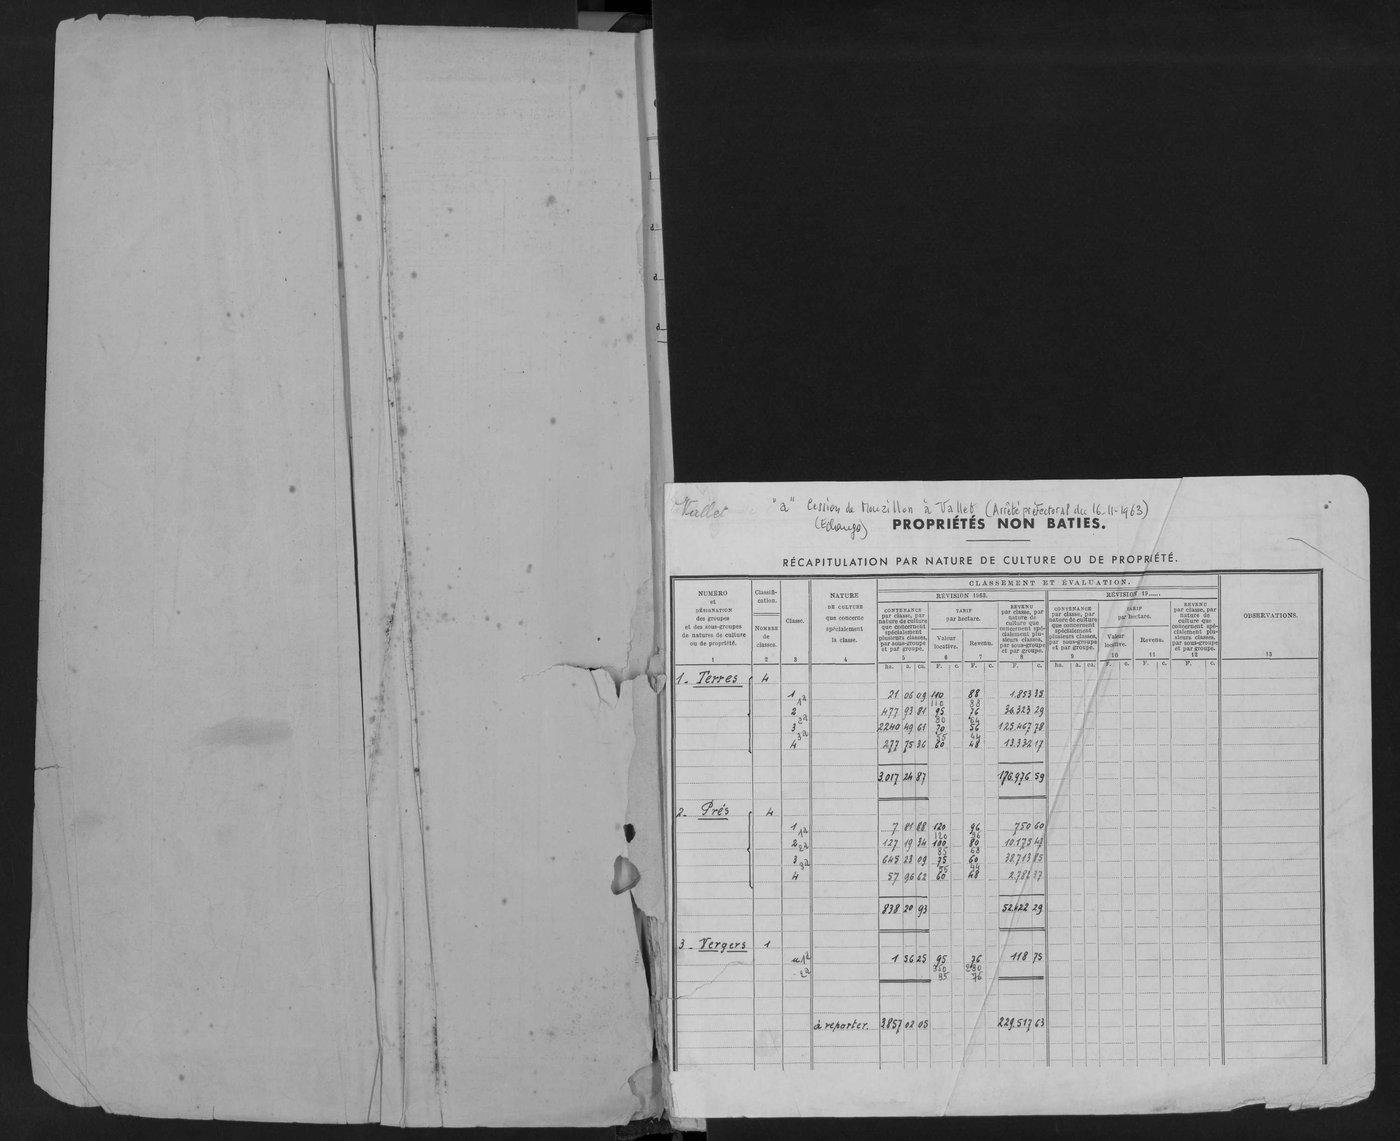 Vallet "a" Cession de Mouzillon à Vallet (Arrêté préfectoral du 16-11-1963)
(Echange) PROPRIÉTÉS NON BATIES.
RÉCAPITULATION PAR NATURE DE CULTURE OU DE PROPRIÉTÉ.
NUMÉRO et DÉSIGNATION des groupes et des sous-groupes de natures de culture ou de propriété. 1
Classification. NOMBRE de classes. 2
Classe. 3
NATURE DE CULTURE que concerne spécialement la classe. 4
CLASSEMENT ET ÉVALUATION.
RÉVISION 1963.
CONTENANCE par classe, par nature de culture que concernent spécialement plusieurs classes, par sous-groupe et par groupe. 5
TARIF par hectare. Valeur locative. 6 Revenu. 7
REVENU par classe, par nature de culture que concernent spécialement plusieurs classes, par sous-groupe et par groupe. 8
RÉVISION 19
CONTENANCE par classe, par nature de culture que concernent spécialement plusieurs classes, par sous-groupe et par groupe. 9
TARIF par hectare. Valeur locative. 10 Revenu. 11
REVENU par classe, par nature de culture que concernent spécialement plusieurs classes, par sous-groupe et par groupe. 12
OBSERVATIONS. 13
ha. a. ca. F. c. F. c. F. c. ha. a. ca. F. c. F. c. F. c.
1_ Terres 4
1 21 06 09 110 88 1.853 35
1a 110 88
2 477 93 81 95 76 36.323 29
2a 80 64
3 2240 49 61 70 56 125.467 78
3a 55 44
4 277 75 36 60 48 13.332 17
3.017 24 87 176.976 59
2_ Prés 4
1 7 81 88 120 96 750 60
1a 120 96
2 127 19 34 100 80 10.175 47
2a 85 68
3 645 23 09 75 60 38.713 85
3a 55 44
4 57 96 62 60 48 2.782 37
838 20 93 52.422 29
3_ Vergers 1
u 1 56 25 95 76 118 75
1a
2a 95 76
à reporter. 3857 02 05 229.517 63